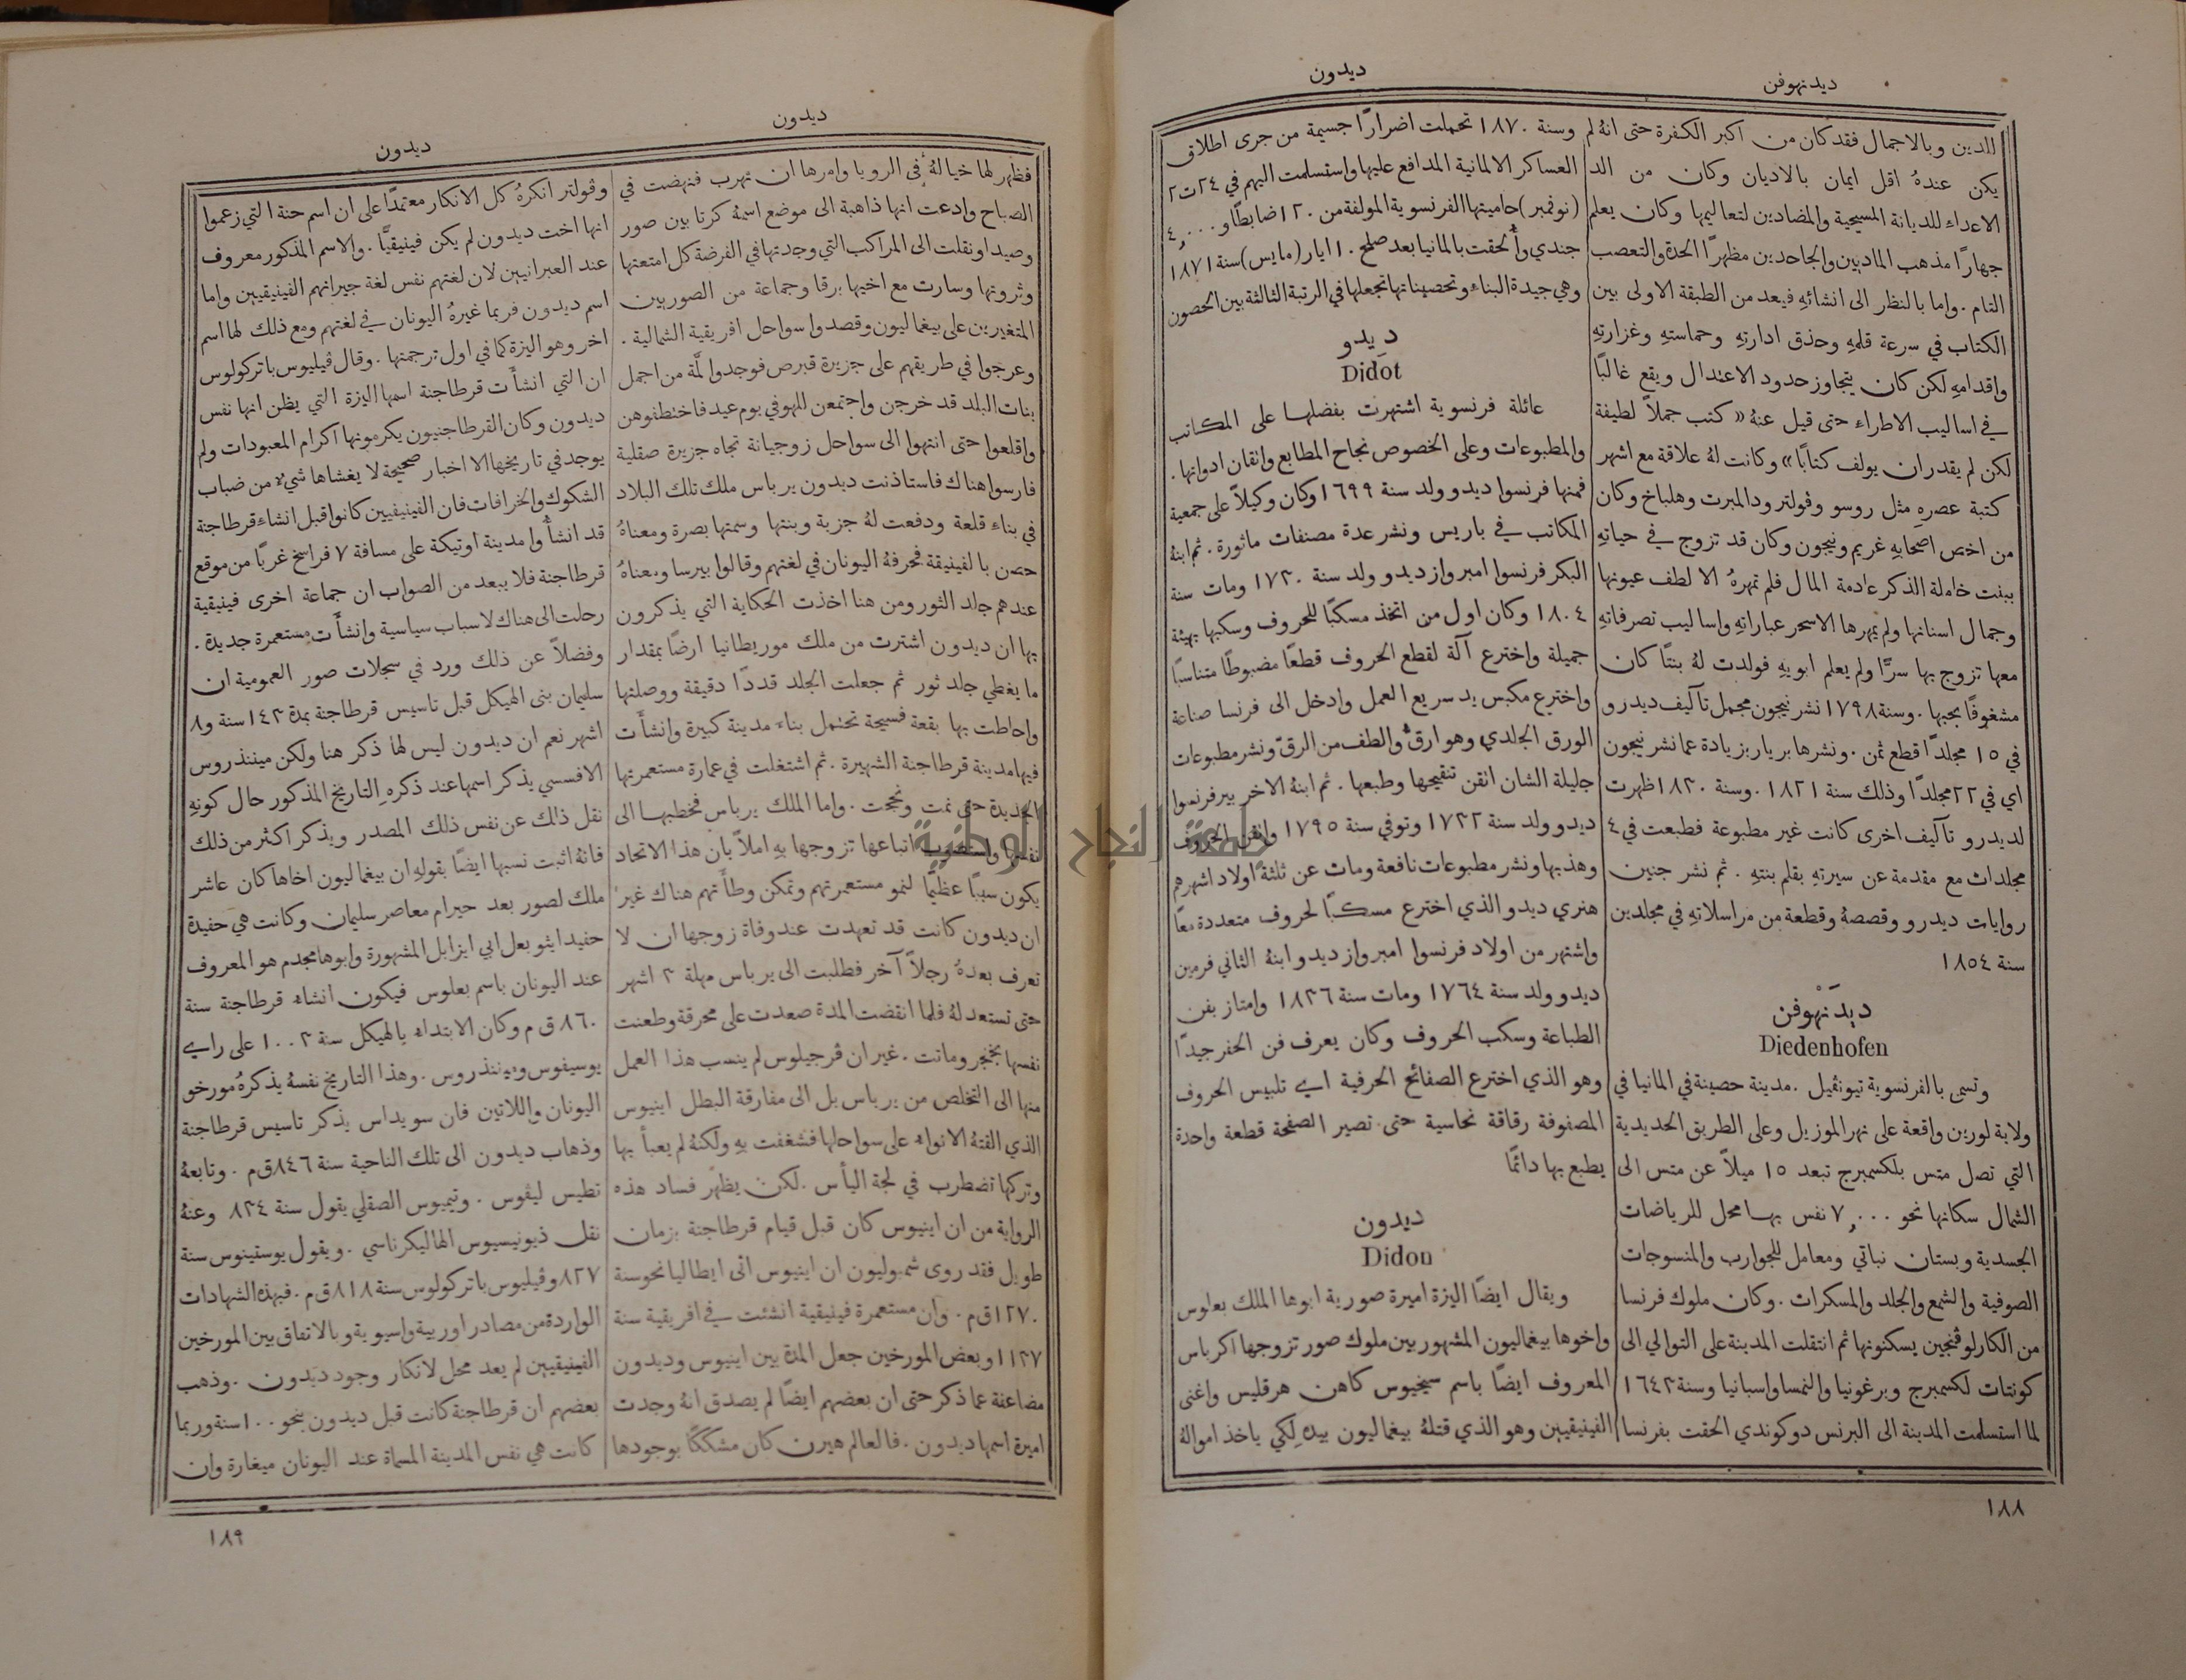 ديدنهوفن
ديدون
للدين وبالاجمال فقد كان من اكبر الكفرة حتى انهُ لم
يكن عندهُ اقل ايمان بالاديان وكان من الد
الاعداء للديانة المسيحية والمضادين لتعاليمها وكان يعلم
جهارًا مذهب الماديين والجاحدين مظهرًا الحدة والتعصب
التام . واما بالنظر الى انشائهِ فيعد من الطبقة الاولى بين
الكتاب في سرعة قلمهِ وحذق ادارتهِ وحماستهِ وغزارتهِ
واقدامهِ لكن كان يتجاوز حدود الاعندال ويقع غالبًا
في اساليب الاطراء حتى قيل عنهُ «كتب جملاً لطيفة
لكن لم يقدر ان يولف كتابًا» وكانت لهُ علاقة مع اشهر
كتبة عصرهِ مثل روسو وفولتر ودالمبرت وهلباخ وكان
من اخص اصحابهِ غريم ونيجون وكان قد تزوج في حياتهِ
ببنت خاملة الذكر عادمة المال فلم تمهرهُ الا لطف عيونها
وجمال اسنانها ولم يمهرها الا سحر عباراتهِ واساليب تصرفاتهِ
معها تزوج بها سرًّا ولم يعلم ابويهِ فولدت لهُ بنتًا كان
مشغوفًا بحبها . وسنة ١٧٩٨ نشر نيجون مجمل تآليف ديدرو
في ١٥ مجلدًا قطع ثمن . ونشرها بريار بزيادة عما نشر نيجون
اي في ٢٢ مجلدًا وذلك سنة ١٨٢١ . وسنة ١٨٣٠ ظهرت
لديدرو تآليف اخرى كانت غير مطبوعة فطبعت في ٤
مجلدات مع مقدمة عن سيرتهِ بقلم بنتهِ . ثم نشر جنين
روايات ديدرو وقصصهُ وقطعة من مراسلاتهِ في مجلدين
سنة ١٨٥٤
ديدَنْهوفن
Diedenhofen
وتسمى بالفرنسوية تيونڤيل . مدينة حصينة في المانيا في
ولاية لورين واقعة على نهر الموزيل وعلى الطريق الحديدية
التي تصل متس بلكسمبرج تبعد ١٥ ميلاً عن متس الى
الشمال سكانها نحو ٧٬٠٠٠ نفس بها محل للرياضات
الجسدية وبستان نباتي ومعامل للجوارب والمنسوجات
الصوفية والشمع والجلد والمسكرات . وكان ملوك فرنسا
من الكارلوڤنجين يسكنونها ثم انتقلت المدينة على التوالي الى
كونتات لكسمبرج وبرغونيا والنمسا واسبانيا وسنة ١٦٤٣
لما استسلمت المدينة الى البرنس دوكوندي الحقت بفرنسا
وسنة ١٨٧٠ تحملت اضرارًا جسيمة من جرى اطلاق
العساكر الالمانية المدافع عليها واستسلمت اليهم في ٢٤ ت٢
(نوفمبر) حاميتها الفرنسوية المولفة من ١٢٠ ضابطًا و ٤٬٠٠٠
جندي وأُلحقت بالمانيا بعد صلح ١٠ ايار (مايس) سنة ١٨٧١
وهي جيدة البناء وتحصيناتها تجعلها في الرتبة الثالثة بين الحصون
ديدو
Didot
عائلة فرنسوية اشتهرت بفضلها على المكاتب
والمطبوعات وعلى الخصوص نجاح المطابع واتقان ادواتها .
فمنها فرنسوا ديدو ولد سنة ١٦٩٩ وكان وكيلاً على جمعية
المكاتب في باريس ونشر عدة مصنفات ماثورة . ثم ابنهُ
البكر فرنسوا امبرواز ديدو ولد سنة ١٧٣٠ ومات سنة
١٨٠٤ وكان اول من اتخذ مسكبًا للحروف وسكبها بهيئة
جميلة واخترع آلة لقطع الحروف قطعًا مضبوطًا متناسبًا
واخترع مكبس يد سريع العمل وادخل الى فرنسا صناعة
الورق الجلدي وهو ارقُّ والطف من الرقّ ونشر مطبوعات
جليلة الشان اتقن تنقيحها وطبعها . ثم ابنهُ الاخر بيرفرنسوا
ديدو ولد سنة ١٧٣٢ وتوفي سنة ١٧٩٥ واتقن الحروف
وهذبها ونشر مطبوعات نافعة ومات عن ثلثة اولاد اشهرهم
هنري ديدو الذي اخترع مسكبًا لحروف متعددة معًا
واشتهر من اولاد فرنسوا امبرواز ديدو ابنهُ الثاني فرمين
ديدو ولد سنة ١٧٦٤ ومات سنة ١٨٣٦ وامتاز بفن
الطباعة وسكب الحروف وكان يعرف فن الحفر جيدًا
وهو الذي اخترع الصفائح الحرفية اي تلبيس الحروف
المصفوفة رقاقة نحاسية حتى تصير الصفحة قطعة واحدة
يطبع بها دائمًا
ديدون
Didon
ويقال ايضًا اليزة اميرة صورية ابوها الملك بعلوس
واخوها بيغماليون المشهور بين ملوك صور تزوجها اكرباس
المعروف ايضًا باسم سيخيوس كاهن هرقليس واغنى
الفينيقيين وهو الذي قتلهُ بيغماليون بيدهِ لكي ياخذ اموالهُ
١٨٨
ديدون
ديدون
فظهر لها خيالهُ في الرويا وامرها ان تهرب فنهضت في
الصباح وادعت انها ذاهبة الى موضع اسمهُ كرتا بين صور
وصيدا ونقلت الى المراكب التي وجدتها في الفرضة كل امتعتها
وثروتها وسارت مع اخيها برقا وجماعة من الصوريين
المتغيرين على بيغماليون وقصدوا سواحل افريقية الشمالية .
وعرجوا في طريقهم على جزيرة قبرص فوجدوا لمَّة من اجمل
بنات البلد قد خرجن واجتمعن للهو في يوم عيد فاختطفوهن
واقلعوا حتى انتهوا الى سواحل زوجيانة تجاه جزيرة صقلية
فارسوا هناك فاستاذنت ديدون يرباس ملك تلك البلاد
في بناء قلعة ودفعت لهُ جزية وبنتها وسمتها بصرة ومعناهُ
حصن بالفينيقة فحرفهُ اليونان في لغتهم وقالوا بيرسا ومعناهُ
عندهم جلد الثور ومن هنا اخذت الحكاية التي يذكرون
بها ان ديدون اشترت من ملك موريطانيا ارضًا بمقدار
ما يغطي جلد ثور ثم جعلت الجلد قددًا دقيقة ووصلتها
واحاطت بها بقعة فسيحة تحتمل بناء مدينة كبيرة وانشأَت
فيها مدينة قرطاجنة الشهيرة . ثم اشتغلت في عمارة مستعمرتها
الجديدة حتى نمت ونجحت . واما الملك يرباس فخطبها الى
نفسها واستصوب اتباعها تزوجها بهِ املاً بان هذا الاتحاد
يكون سببًا عظيمًا لنمو مستعمرتهم وتمكن وطأَتهم هناك غير
ان ديدون كانت قد تعهدت عند وفاة زوجها ان لا
تعرف بعدهُ رجلاً آخر فطلبت الى يرباس مهلة ٣ اشهر
حتى تستعد لهُ فلما انقضت المدة صعدت على محرقة وطعنت
نفسها بخنجر وماتت . غير ان ڤرجيلوس لم ينسب هذا العمل
منها الى التخلص من يرباس بل الى مفارقة البطل اينيوس
الذي القتهُ الانواء على سواحلها فشغفت بهِ ولكنهُ لم يعبأ بها
وتركها تضطرب في لجة اليأس . لكن يظهر فساد هذه
الرواية من ان اينيوس كان قبل قيام قرطاجنة بزمان
طويل فقد روى شمبوليون ان اينيوس اتى ايطاليا نحو سنة
١٢٧٠ ق م . وان مستعمرة فينيقية انشئت في افريقية سنة
١١٢٧ وبعض المورخين جعل المدة بين اينيوس وديدون
مضاعفة عما ذكر حتى ان بعضهم ايضًا لم يصدق انهُ وجدت
اميرة اسمها ديدون . فالعالم هيرن كان مشككًا بوجودها
وڤولتر انكرهُ كل الانكار معتمدًا على ان اسم حنة التي زعموا
انها اخت ديدون لم يكن فينيقيًّا . والاسم المذكور معروف
عند العبرانيين لان لغتهم نفس لغة جيرانهم الفينيقيين واما
اسم ديدون فربما غيرهُ اليونان في لغتهم ومع ذلك لها اسم
اخر وهو اليزة كما في اول ترجمتها . وقال ڤيليوس باتركولوس
ان التي انشأَت قرطاجنة اسمها اليزة التي يظن انها نفس
ديدون وكان القرطاجنيون يكرمونها اكرام المعبودات ولم
يوجد في تاريخها الا اخبار صحيحة لا يغشاها شيءٌ من ضباب
الشكوك والخرافات فان الفينيقيين كانوا قبل انشاء قرطاجنة
قد انشأُوا مدينة اوتيكة على مسافة ٧ فراسخ غربًا من موقع
قرطاجنة فلا يبعد من الصواب ان جماعة اخرى فينيقية
رحلت الى هناك لاسباب سياسية وانشأَت مستعمرة جديدة .
وفضلاً عن ذلك ورد في سجلات صور العمومية ان
سليمان بنى الهيكل قبل تاسيس قرطاجنة بمدة ١٤٣ سنة و٨
اشهر نعم ان ديدون ليس لها ذكر هنا ولكن مينندروس
الافسسي يذكر اسمها عند ذكرهِ التاريخ المذكور حال كونهِ
نقل ذلك عن نفس ذلك المصدر ويذكر اكثر من ذلك
فانهُ اثبت نسبها ايضًا بقولهِ ان بيغماليون اخاها كان عاشر
ملك لصور بعد حيرام معاصر سليمان وكانت هي حفيدة
حفيد ايثوبعل ابي ايزابل المشهورة وابوها مجدم هو المعروف
عند اليونان باسم بعلوس فيكون انشاء قرطاجنة سنة
٨٦٠ ق م وكان الابتداء بالهيكل سنة ١٠٠٣ على راي
يوسيفوس ومينندروس . وهذا التاريخ نفسهُ يذكرهُ مورخو
اليونان واللاتين فان سويداس يذكر تاسيس قرطاجنة
وذهاب ديدون الى تلك الناحية سنة ٨٤٦ ق م . وتابعهُ
تطيس ليڤوس . وتيميوس الصقلي يقول سنة ٨٢٤ وعنهُ
نقل ذيونيسيوس الهاليكرناسي . ويقول يوستينوس سنة
٨٢٧ وڤيليوس باتركولوس سنة ٨١٨ ق م . فبهذه الشهادات
الواردة من مصادر اوربية واسيوية وبالاتفاق بين المورخين
الفينيقيين لم يعد محل لانكار وجود ديدون . وذهب
بعضهم ان قرطاجنة كانت قبل ديدون بنحو ١٠٠ سنة وربما
كانت هي نفس المدينة المسماة عند اليونان ميغارة وان
١٨٩
جامعة النجاح الوطنية